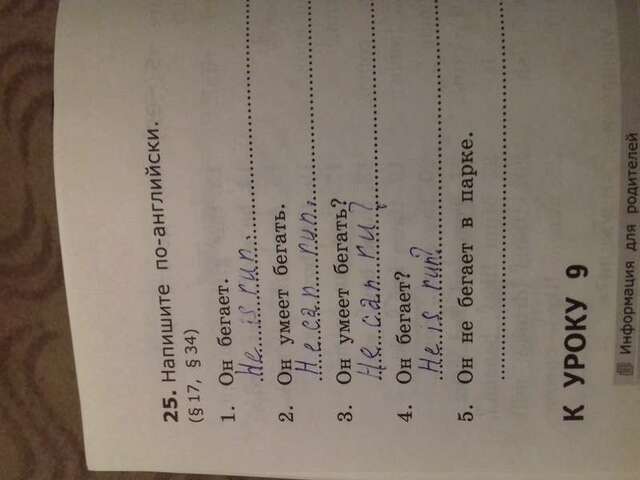 25. Напишите по-английски.
(§ 17, § 34)
1. Он бегает.
He is run.
2. Он умеет бегать.
He can run.
3. Он умеет бегать?
He can ru?
4. Он бегает?
He is run?
5. Он не бегает в парке.
К УРОКУ 9
Информация для родителей